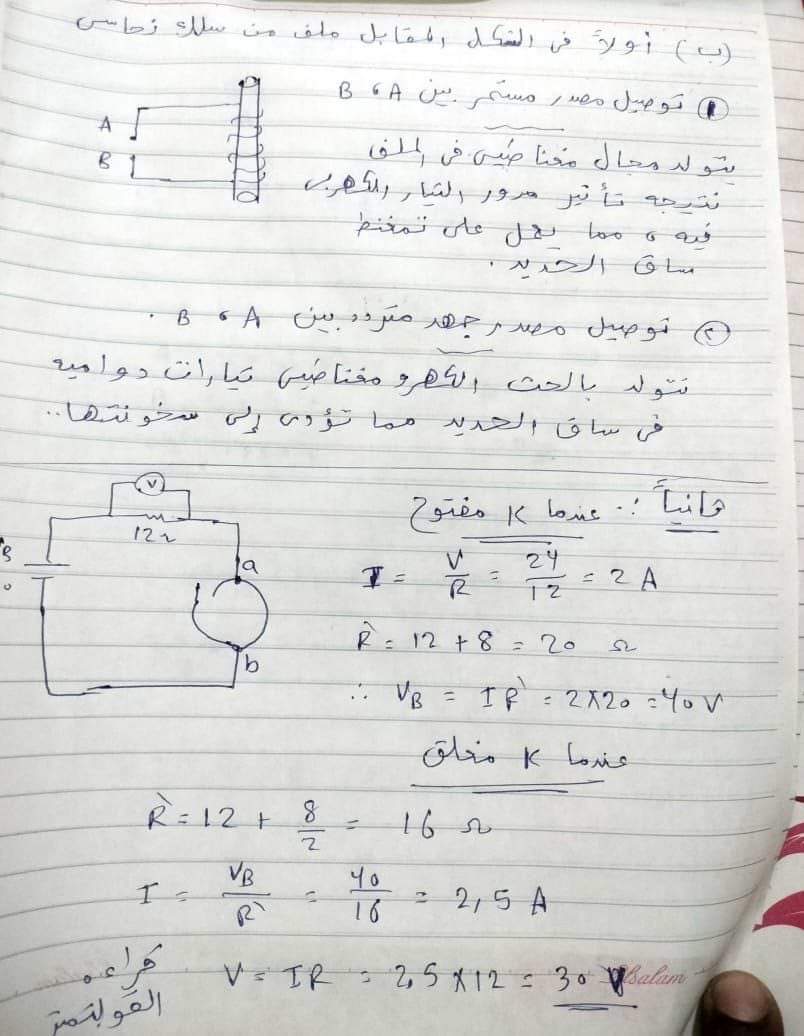 (ب) أولاً فى الشكل المقابل ملف من سلك نحاسى
① توصيل مصدر مستمر بين A ، B
A
B
يتولد مجال مغناطيسى فى الملف
نتيجه تأثير مرور التيار الكهربى
فيه ، مما يعمل على تمغنط
ساق الحديد .
② توصيل مصدر جهد متردد بين A ، B .
تتولد بالحث الكهرومغناطيسى تيارات دواميه
فى ساق الحديد مما تؤدى إلى سخونتها..
ثانياً :. عندما K مفتوح
V
12 Ω
a
b
I = V/R = 24/12 = 2 A
R̀ = 12 + 8 = 20 Ω
∴ VB = IR̀ = 2×20 = 40 V
عندما K مغلق
R̀ = 12 + 8/2 = 16 Ω
I = VB/R̀ = 40/16 = 2,5 A
قراءه الفولتمتر V = IR = 2,5 × 12 = 30 V